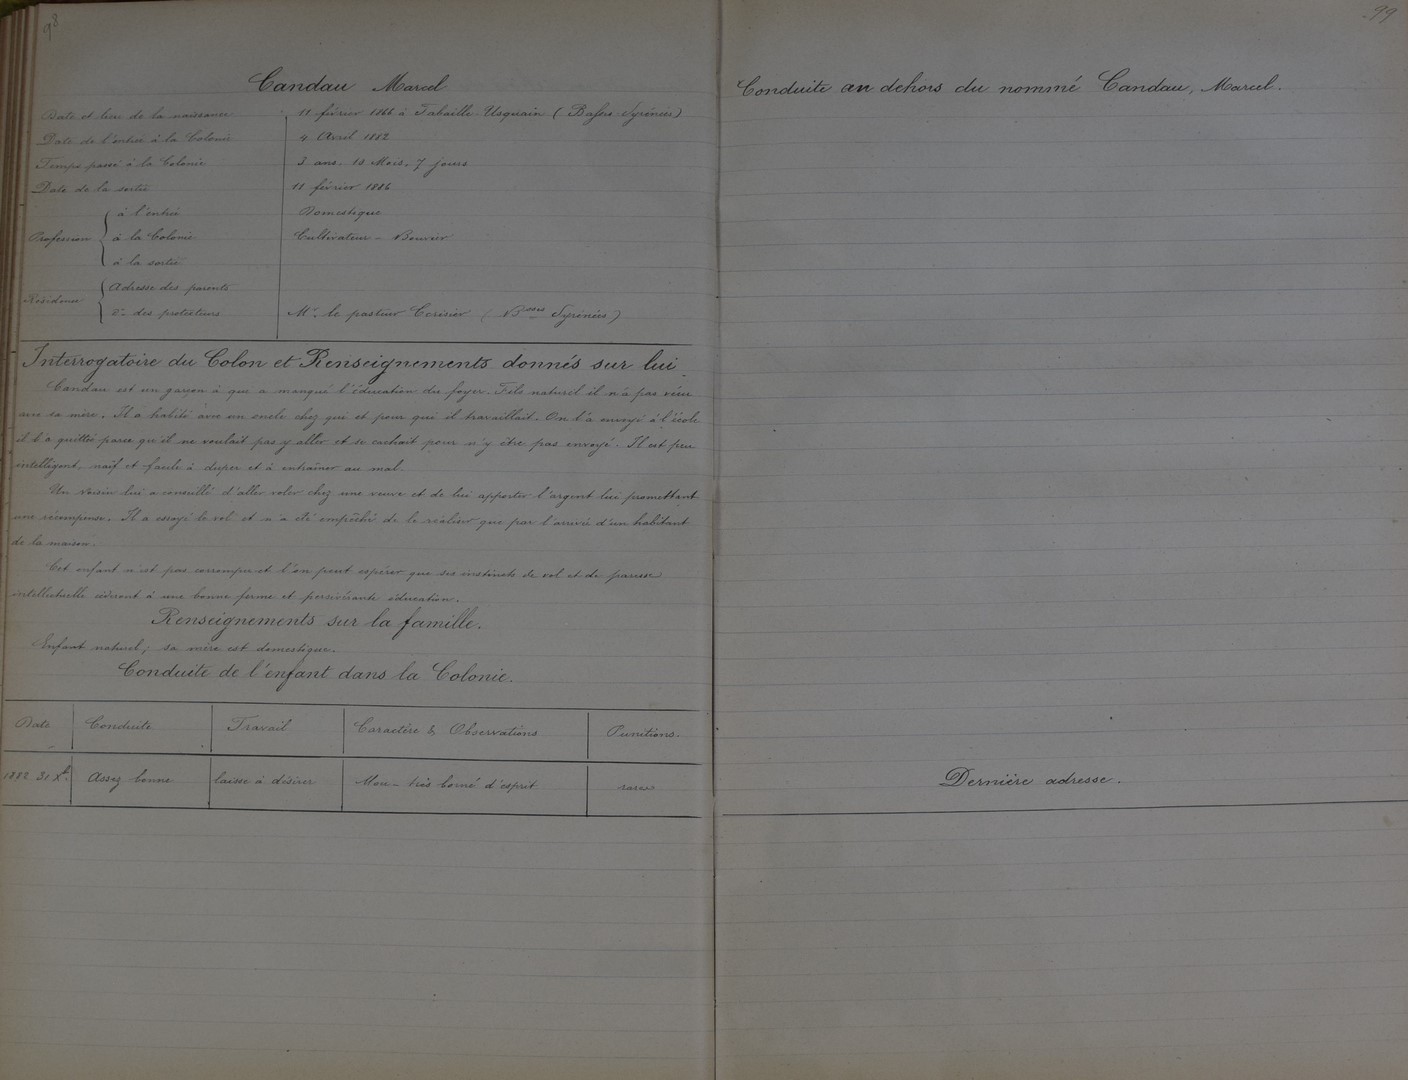 98
Candau Marcel
Date et lieu de la naissance : 11 février 1866 à Tabaille-Usquain (Basses Pyrénées)
Date de l'entrée à la Colonie 4 Avril 1882
Temps passé à la Colonie 3 ans. 10 Mois. 7 jours
Date de la sortie 11 février 1886
Profession
à l'entrée Domestique
à la Colonie Cultivateur - Bouvier
à la sortie
Résidence
Adresse des parents
d° des protecteurs Mr. le pasteur Cerisier (Bsses Pyrénées)
Interrogatoire du Colon et Renseignements donnés sur lui.
Candau est un garçon à qui a manqué l'éducation du foyer. Fils naturel il n'a pas vécu
avec sa mère. Il a habité avec un oncle chez qui et pour qui il travaillait. On l'a envoyé à l'école
il l'a quittée parce qu'il ne voulait pas y aller et se cachait pour n'y être pas envoyé. Il est peu
intelligent, naïf et facile à duper et à entraîner au mal.
Un voisin lui a conseillé d'aller voler chez une veuve et de lui apporter l'argent lui promettant
une récompense. Il a essayé le vol et n'a été empêché de le réaliser que par l'arrivée d'un habitant
de la maison.
Cet enfant n'est pas corrompu et l'on peut espérer que ses instincts de vol et de paresse
intellectuelle céderont à une bonne ferme et persévérante éducation.
Renseignements sur la famille.
Enfant naturel; sa mère est domestique.
Conduite de l'enfant dans la Colonie.
Date Conduite Travail Caractère & Observations Punitions.
1882 31 Xbre Assez bonne laisse à désirer Mou - très borné d'esprit rares
99
Conduite au dehors du nommé Candau, Marcel.
Dernière adresse.